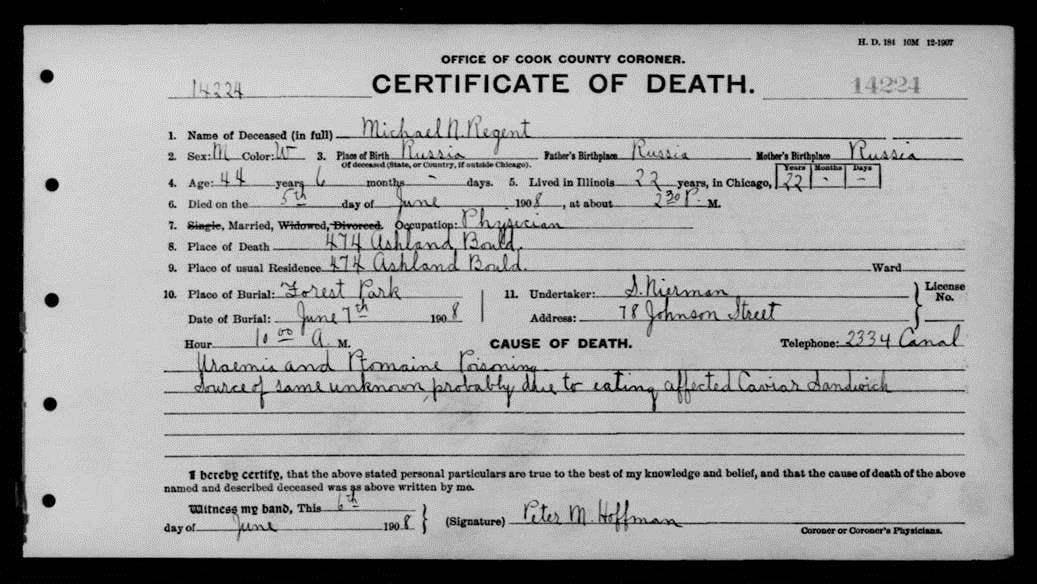 H. D. 184 10M 12-1907
OFFICE OF COOK COUNTY CORONER.
14224 CERTIFICATE OF DEATH. 14224
1. Name of Deceased (in full) Michael N. Regent
2. Sex: M Color: W 3. Place of Birth Russia Father's Birthplace Russia Mother's Birthplace Russia
Of deceased (State, or Country, if outside Chicago).
Years Months Days
4. Age: 44 years 6 months - days. 5. Lived in Illinois 22 years, in Chicago, 22 - -
6. Died on the 5th day of June 1908, at about 2 30 P. M.
7. Single, Married, Widowed, Divorced. Occupation: Physician
8. Place of Death 474 Ashland Bould.
9. Place of usual Residence 474 Ashland Bould. Ward
10. Place of Burial: Forest Park 11. Undertaker: S. Nierman License No.
Date of Burial: June 7th 1908 Address: 78 Johnson Street
Hour 10 00 A. M. CAUSE OF DEATH. Telephone: 2334 Canal
Uraemia and Ptomaine Poisoning
Source of same unknown, probably due to eating affected Caviar Sandwich
I hereby certify, that the above stated personal particulars are true to the best of my knowledge and belief, and that the cause of death of the above
named and described deceased was as above written by me.
Witness my hand, This 6th
day of June 1908 (Signature) Peter M. Hoffman
Coroner or Coroner's Physicians.